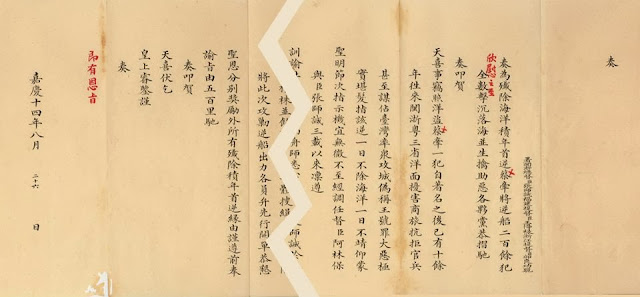 奏
奏為殲除海洋積年首逆蔡牽將逆船二百餘犯
全數擊沉落海並生擒助惡各夥黨恭摺馳
欣慰之至
奏叩賀
天喜事竊照洋盜蔡牽一犯自著名之後已有十餘
年往來閩浙粵三省洋面擾害商旅抗拒官兵
甚至謀佔臺灣率眾攻城偽稱王號罪大惡極
實堪髮指該逆一日不除海洋一日不靖仰蒙
聖明節次指示機宜無微不至經調任督臣阿林保
與臣張師誠三載以來凜遵
訓諭 林 舟師 搜緝 師誠
將此次攻勦逆船出力各員弁先行開單恭懇
聖恩分別獎勵外所有殲除積年首逆緣由謹遵前奉
諭旨由五百里馳
奏叩賀
天喜伏乞
皇上睿鑒謹
奏
即有恩旨
嘉慶十四年八月 二十六 日